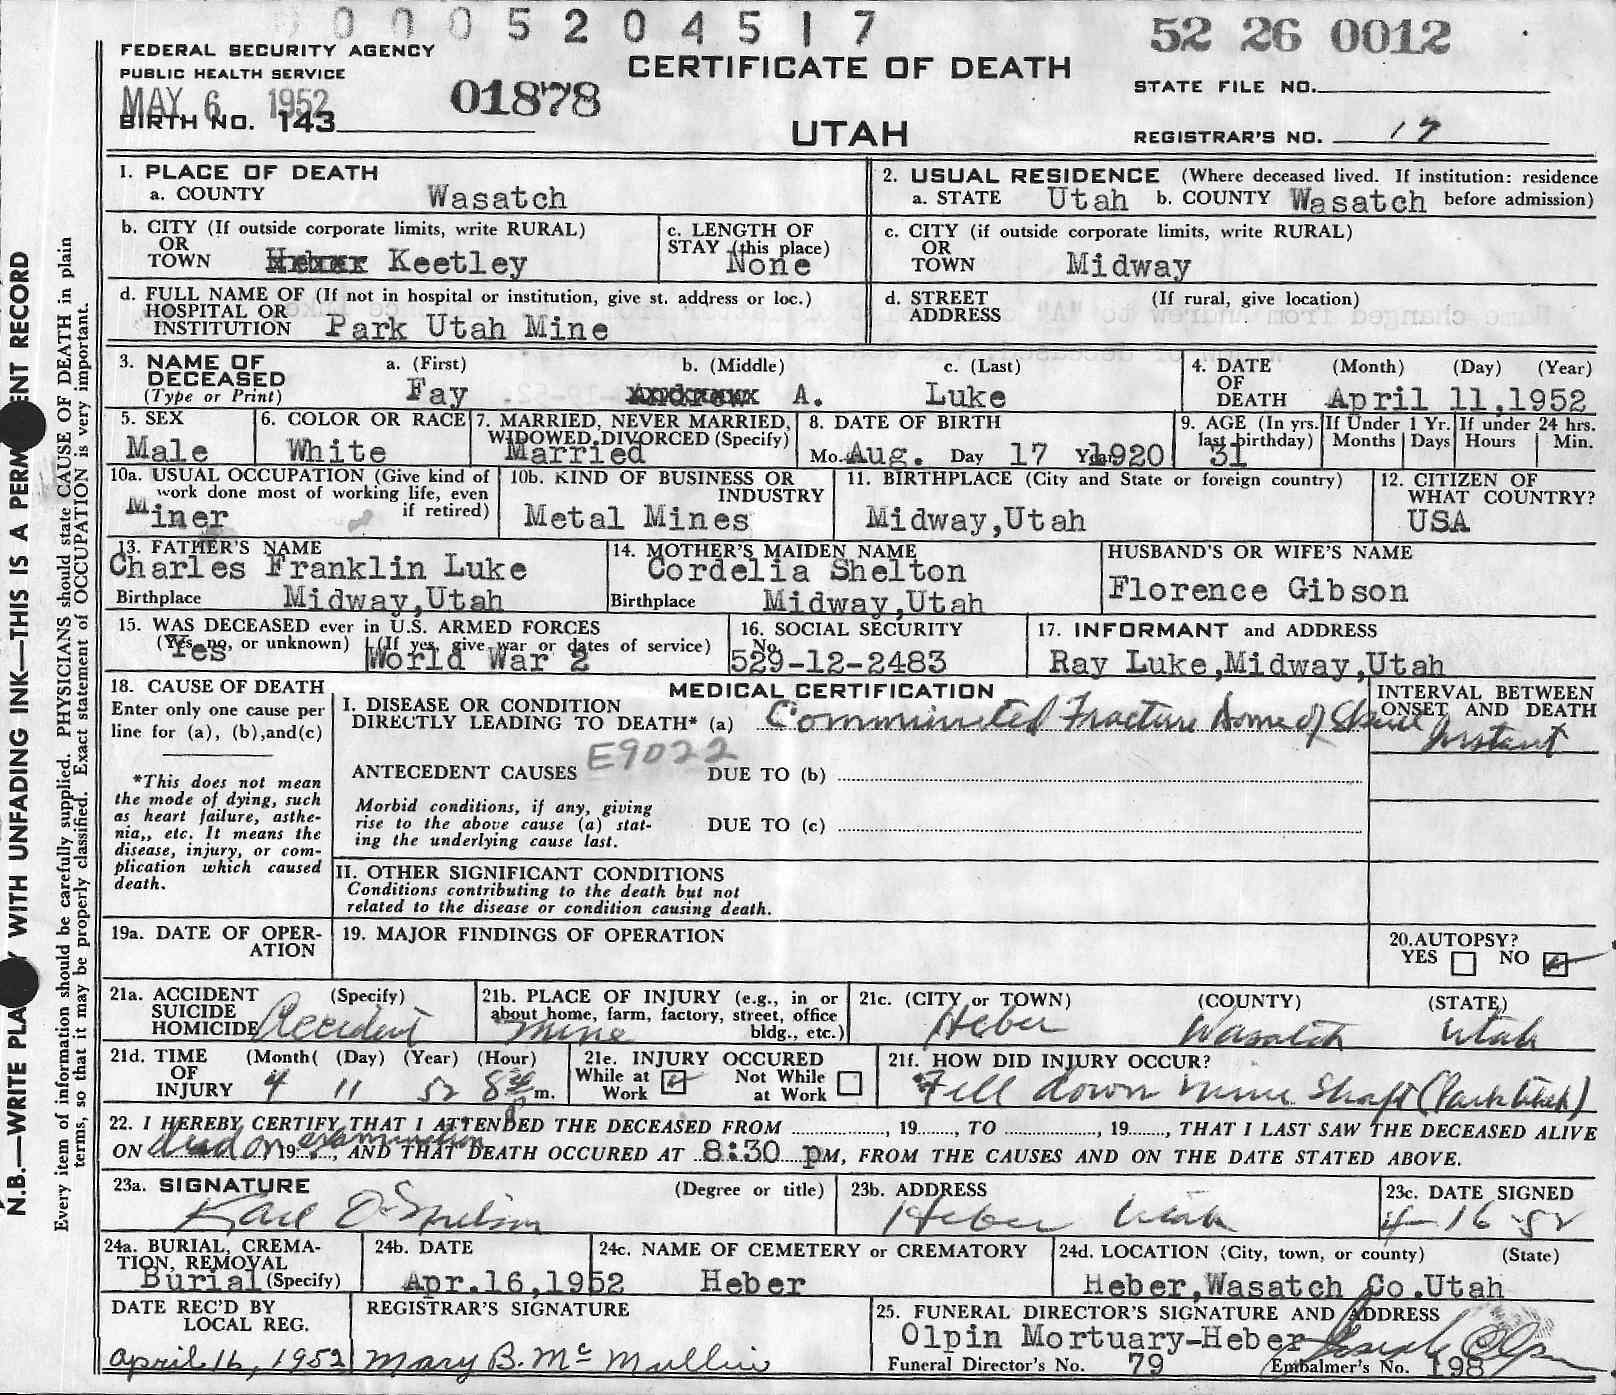 0 0 0 5 2 0 4 5 1 7
52 26 0012
FEDERAL SECURITY AGENCY
PUBLIC HEALTH SERVICE
MAY 6 1952
01878
CERTIFICATE OF DEATH
STATE FILE NO.
BIRTH NO. 143
UTAH
REGISTRAR'S NO. 17
1. PLACE OF DEATH
a. COUNTY Wasatch
2. USUAL RESIDENCE (Where deceased lived. If institution: residence
a. STATE Utah b. COUNTY Wasatch before admission)
b. CITY (If outside corporate limits, write RURAL)
OR
TOWN Keetley
c. LENGTH OF
STAY (this place)
None
c. CITY (if outside corporate limits, write RURAL)
OR
TOWN Midway
d. FULL NAME OF (If not in hospital or institution, give st. address or loc.)
HOSPITAL OR
INSTITUTION Park Utah Mine
d. STREET (If rural, give location)
ADDRESS
3. NAME OF a. (First) b. (Middle) c. (Last)
DECEASED
(Type or Print) Fay A. Luke
4. DATE (Month) (Day) (Year)
OF
DEATH April 11,1952
5. SEX
Male
6. COLOR OR RACE
White
7. MARRIED, NEVER MARRIED,
WIDOWED, DIVORCED (Specify)
Married
8. DATE OF BIRTH
Mo. Aug. Day 17 Year 1920
9. AGE (In yrs. If Under 1 Yr. If under 24 hrs.
last birthday) Months Days Hours Min.
31
10a. USUAL OCCUPATION (Give kind of
work done most of working life, even
if retired)
Miner
10b. KIND OF BUSINESS OR
INDUSTRY
Metal Mines
11. BIRTHPLACE (City and State or foreign country)
Midway,Utah
12. CITIZEN OF
WHAT COUNTRY?
USA
13. FATHER'S NAME
Charles Franklin Luke
Birthplace Midway,Utah
14. MOTHER'S MAIDEN NAME
Cordelia Shelton
Birthplace Midway,Utah
HUSBAND'S OR WIFE'S NAME
Florence Gibson
15. WAS DECEASED ever in U.S. ARMED FORCES
(Yes, no, or unknown) (If yes, give war or dates of service)
Yes World War 2
16. SOCIAL SECURITY
No.
529-12-2483
17. INFORMANT and ADDRESS
Ray Luke,Midway,Utah
18. CAUSE OF DEATH
Enter only one cause per
line for (a), (b),and(c)
*This does not mean
the mode of dying, such
as heart failure, asthe-
nia,, etc. It means the
disease, injury, or com-
plication which caused
death.
MEDICAL CERTIFICATION
I. DISEASE OR CONDITION
DIRECTLY LEADING TO DEATH* (a) Comminuted Fracture dome of Skull
INTERVAL BETWEEN
ONSET AND DEATH
Instant
E9022
ANTECEDENT CAUSES DUE TO (b)
Morbid conditions, if any, giving
rise to the above cause (a) stat-
ing the underlying cause last.
DUE TO (c)
II. OTHER SIGNIFICANT CONDITIONS
Conditions contributing to the death but not
related to the disease or condition causing death.
19a. DATE OF OPER-
ATION
19. MAJOR FINDINGS OF OPERATION
20.AUTOPSY?
YES NO
21a. ACCIDENT (Specify)
SUICIDE
HOMICIDE Accident
21b. PLACE OF INJURY (e.g., in or
about home, farm, factory, street, office
bldg., etc.)
mine
21c. (CITY or TOWN) (COUNTY) (STATE)
Heber Wasatch Utah
21d. TIME (Month( (Day) (Year) (Hour)
OF
INJURY 4 11 52 8 30 P m.
21e. INJURY OCCURED
While at Not While
Work at Work
21f. HOW DID INJURY OCCUR?
Fell down mine Shaft (Park Utah)
22. I HEREBY CERTIFY THAT I ATTENDED THE DECEASED FROM , 19 , TO , 19 , THAT I LAST SAW THE DECEASED ALIVE
ON dead on examination 19 , AND THAT DEATH OCCURED AT 8:30 pM, FROM THE CAUSES AND ON THE DATE STATED ABOVE.
23a. SIGNATURE (Degree or title)
Karl O. Nielson
23b. ADDRESS
Heber Utah
23c. DATE SIGNED
4-16-52
24a. BURIAL, CREMA-
TION, REMOVAL
Burial (Specify)
24b. DATE
Apr.16,1952
24c. NAME OF CEMETERY or CREMATORY
Heber
24d. LOCATION (City, town, or county) (State)
Heber,Wasatch Co.Utah
DATE REC'D BY
LOCAL REG.
April 16, 1952
REGISTRAR'S SIGNATURE
Mary B. Mc Mullin
25. FUNERAL DIRECTOR'S SIGNATURE AND ADDRESS
Olpin Mortuary-Heber
Funeral Director's No. 79 Embalmer's No. 198
N.B.—WRITE WITH UNFADING INK—THIS IS A RECORD
Every item of information should be carefully supplied. PHYSICIANS should state CAUSE OF DEATH in plain
terms, so that it may be properly classified. Exact statement of OCCUPATION is very important.